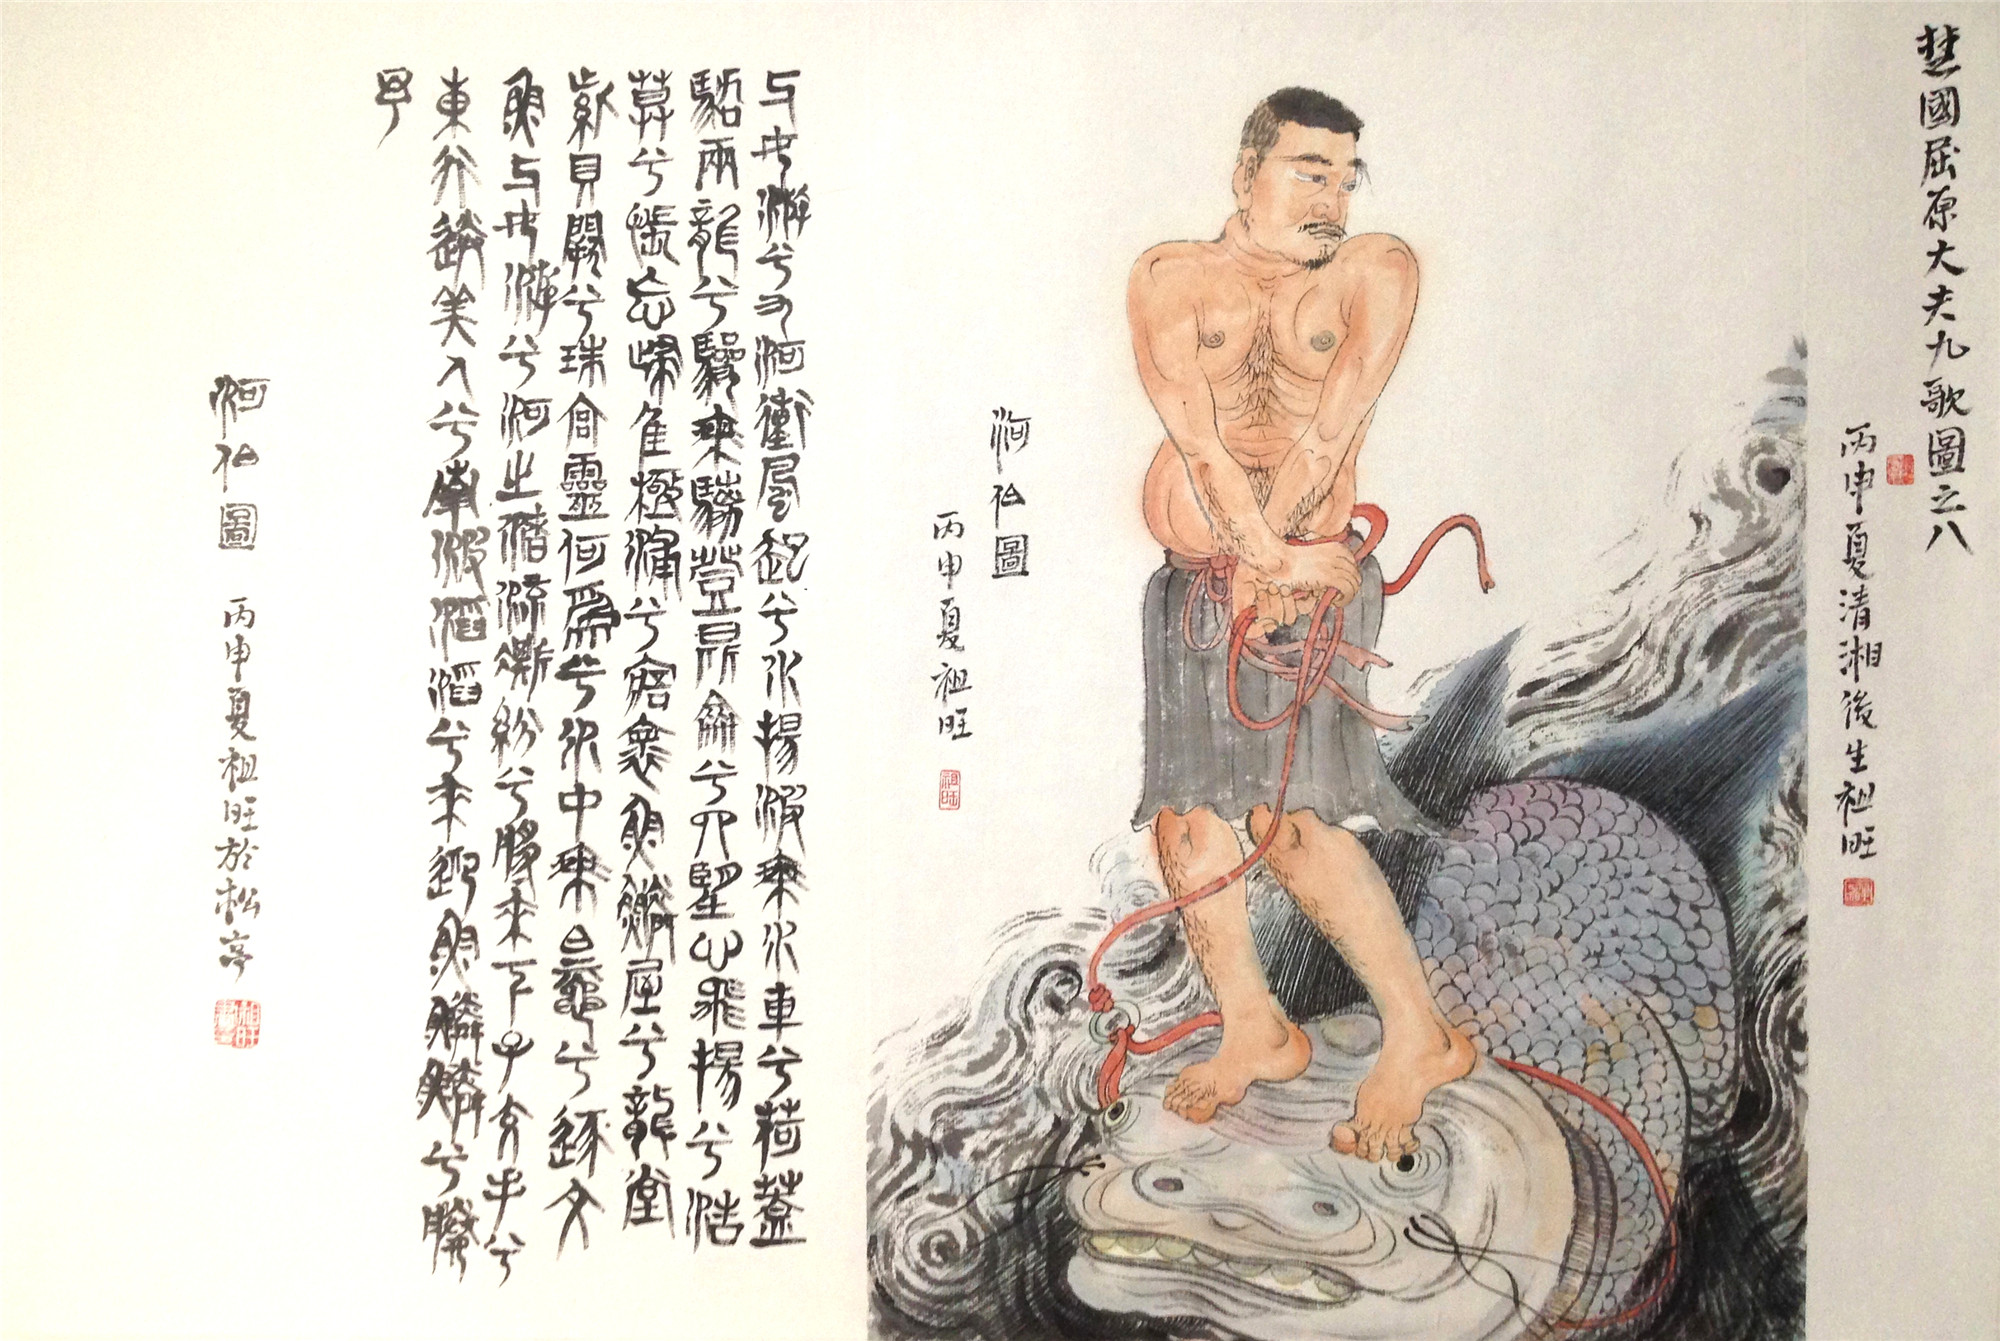 楚國屈原大夫九歌圖之八
丙申夏清湘後生祖旺
河伯圖
丙申夏祖旺
祖旺
与女游兮九河衝風起兮水揚波乘水車兮荷蓋
駕兩龍兮驂乘螭登昆侖兮四望心飛揚兮浩
兮悵忘歸隹極浦兮寤懷魚鱗屋兮龍堂
紫貝闕兮珠宮靈何為兮水中乘白黿兮逐文
魚与女游兮河之渚流澌紛兮將來下子交手兮
東行送美人兮南波滔滔兮來迎魚鱗鱗兮媵
予
河伯圖 丙申夏祖旺於松亭